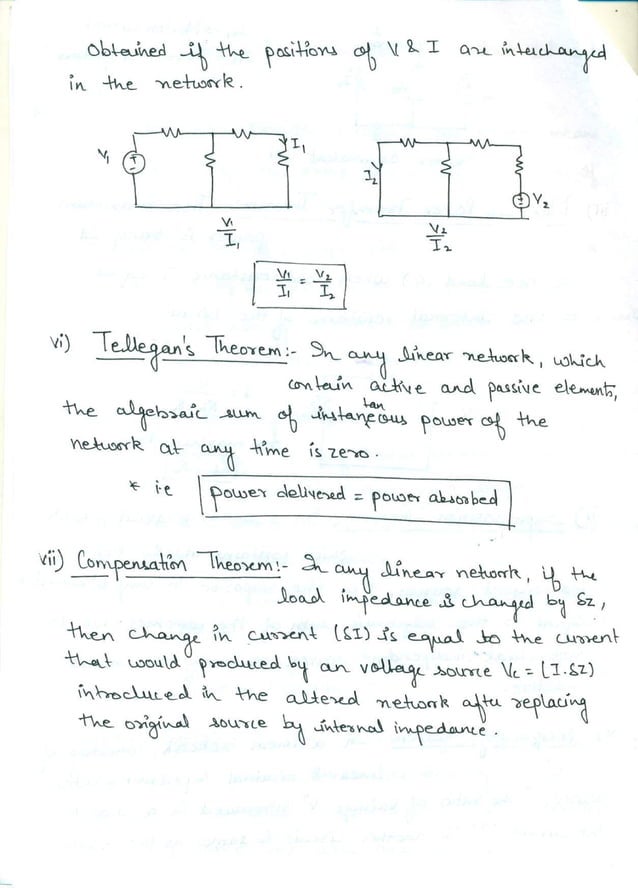 Obtained if the positions of V & I are interchanged
in the network.
V₁ I₁ I₂ V₂
V₁/I₁ V₂/I₂
V₁/I₁ = V₂/I₂
vi) Tellegan's Theorem:- In any linear network, which
contain active and passive elements,
the algebraic sum of instantaneous power of the
network at any time is zero.
* i.e power delivered = power absorbed
vii) Compensation Theorem:- In any linear network, if the
load impedance is changed by δz,
then change in current (δI) is equal to the current
that would produced by an voltage source Vc = (I.δZ)
introduced in the altered network after replacing
the original source by internal impedance.